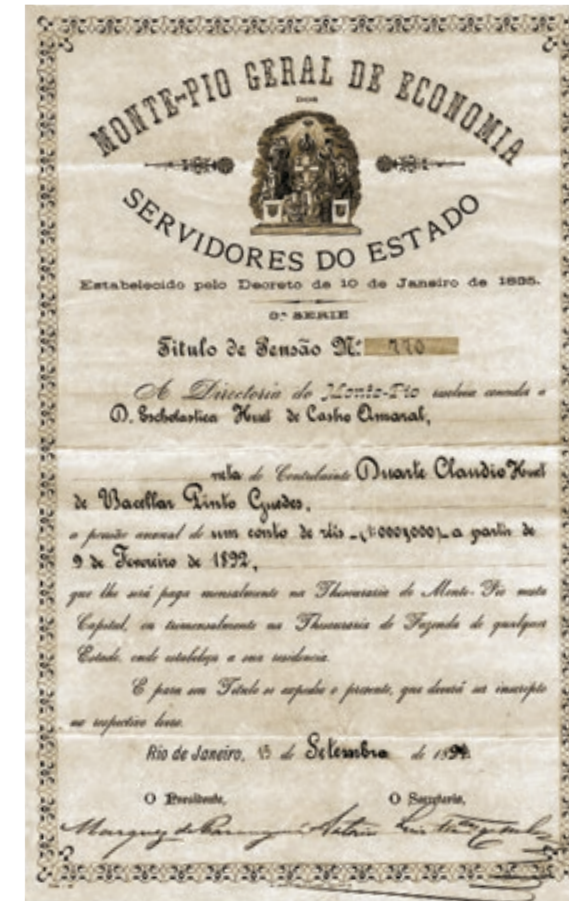 MONTE-PIO GERAL DE ECONOMIA
DOS
SERVIDORES DO ESTADO
Estabelecido pelo Decreto de 10 de Janeiro de 1835.
SERIE
Titulo de Pensão Nº 770
A Directoria do Monte-Pio resolveu conceder a
D. Escholastica Huet de Castro Amaral,
neta do Contribuinte Duarte Claudio Huet
de Bacellar Pinto Guedes,
a pensão annual de um conto de réis (1:000$000) a partir de
9 de Fevereiro de 1892,
que lhe será paga mensalmente na Thesouraria do Monte-Pio nesta
Capital, ou trimensalmente na Thesouraria de Fazenda de qualquer
Estado, onde estabeleça a sua residencia.
E para seu Titulo se expediu o presente, que deverá ser inscripto
no respectivo livro.
Rio de Janeiro, 13 de Setembro de
O Presidente, O Secretario,
Marquez de Paranaguá